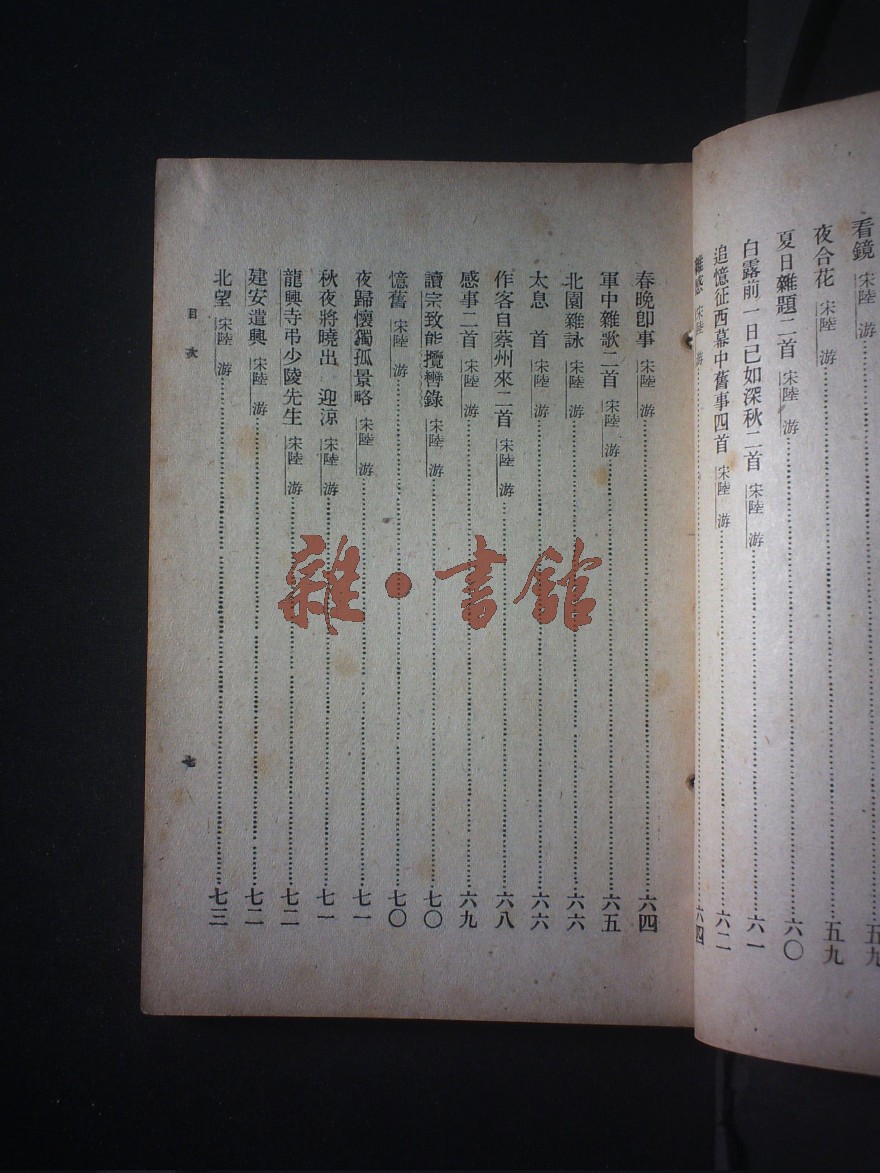 看鏡 宋陸 游 五九
夜合花 宋陸 游 五九
夏日雜題二首 宋陸 游 六〇
白露前一日已如深秋二首 宋陸 游 六一
追憶征西幕中舊事四首 宋陸 游 六二
雜感 宋陸 游 六四
春晚卽事 宋陸 游 六四
軍中雜歌二首 宋陸 游 六五
北園雜詠 宋陸 游 六六
太息 首 宋陸 游 六六
作客自蔡州來二首 宋陸 游 六八
感事二首 宋陸 游 六九
讀宗致能攬轡錄 宋陸 游 七〇
憶舊 宋陸 游 七〇
夜歸懷獨孤景略 宋陸 游 七一
秋夜將曉出 迎涼 宋陸 游 七一
龍興寺弔少陵先生 宋陸 游 七二
建安遣興 宋陸 游 七二
北望 宋陸 游 七三
目次
七
雜·書館